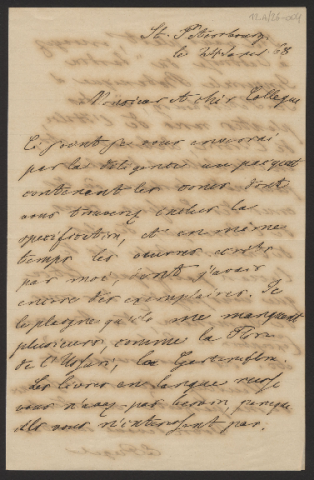 St. Pétersbourg
le 24 68
Monsieur et cher Collègue
Ci joint je vous enverrai
par la diligence un paquet
contenant les dont
vous trouvez la
specification, et en mêmes
temps les œuvres écrits
par moi, dont j'avais
encore des exemplaires. Je
que me manquent
plusieurs, comme la Flore
de l'Ussuri, la Gartenflora.
Les livres en langue russe
vous n'avez pas besoin, puisque
ils vous n'interessent pas.